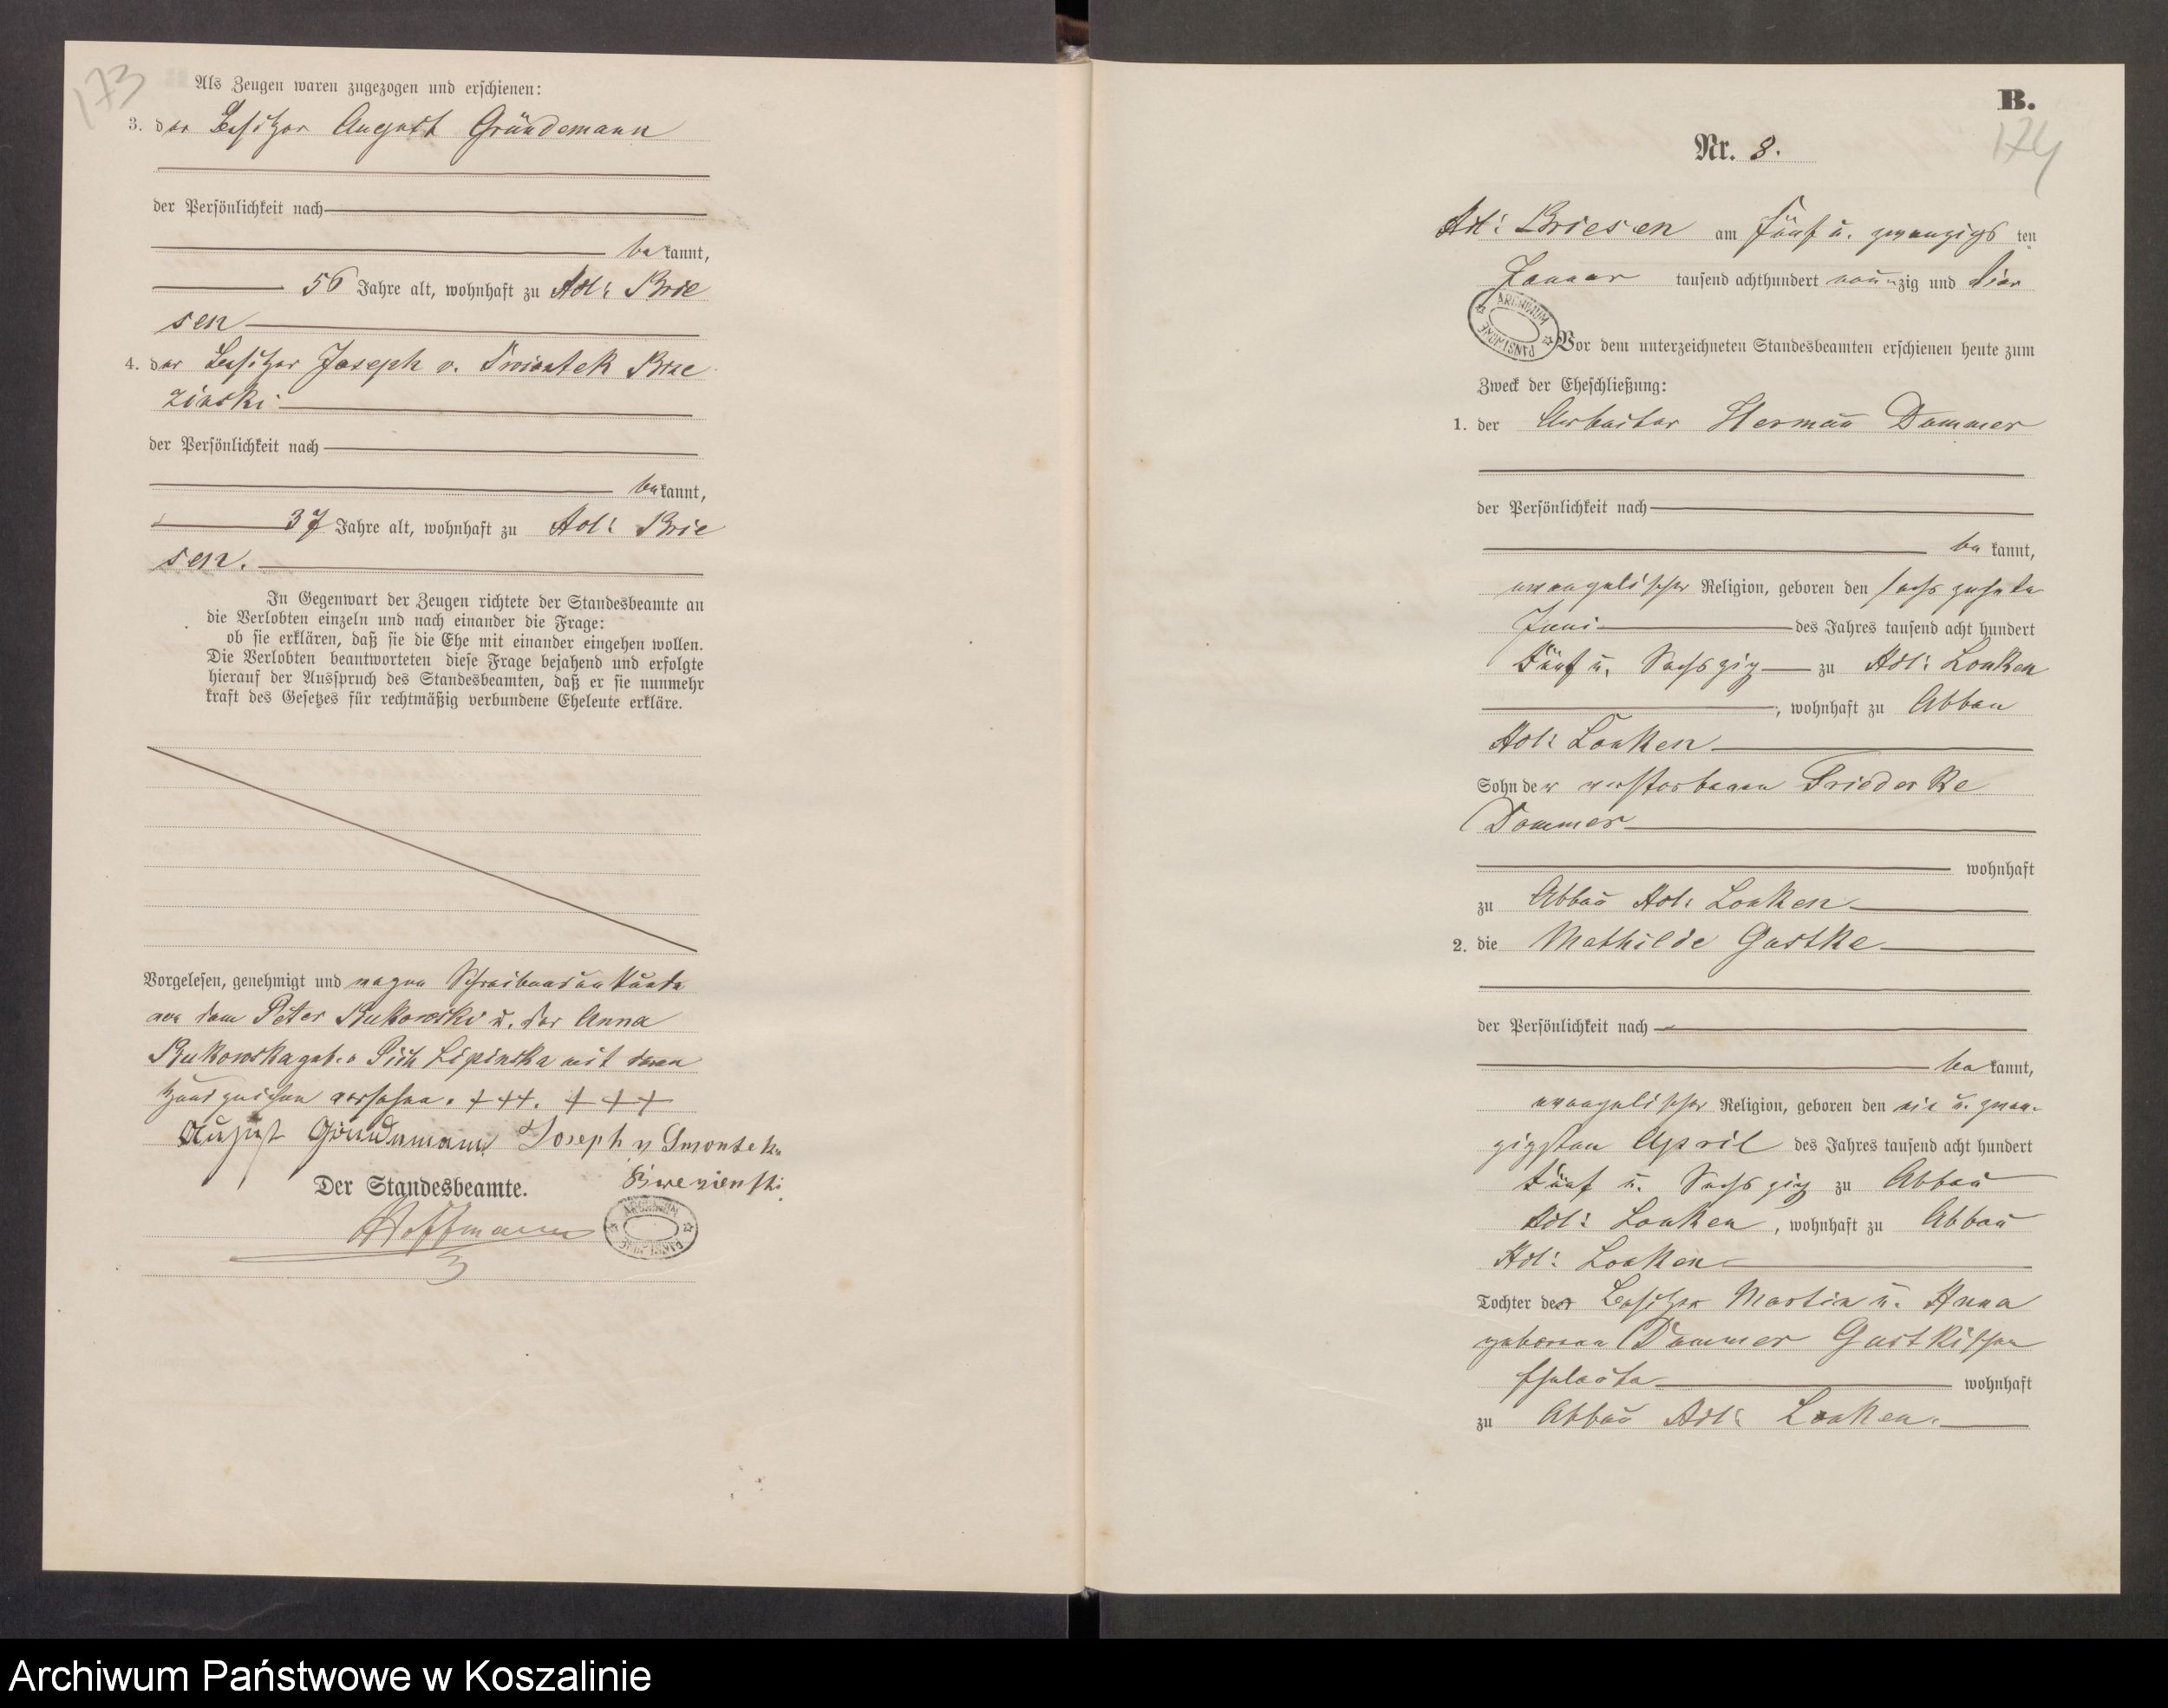 173
Als Zeugen waren zugezogen und erschienen:
3. der Besitzer August Gründemann
der Persönlichkeit nach
be kannt,
56 Jahre alt, wohnhaft zu Adl: Brie
sen
4. der Besitzer Joseph v. Brze
zinski
der Persönlichkeit nach
be kannt,
37 Jahre alt, wohnhaft zu Adl: Brie
sen.
In Gegenwart der Zeugen richtete der Standesbeamte an
die Verlobten einzeln und nach einander die Frage:
ob sie erklären, daß sie die Ehe mit einander eingehen wollen.
Die Verlobten beantworteten diese Frage bejahend und erfolgte
hierauf der Ausspruch des Standesbeamten, daß er sie nunmehr
kraft des Gesetzes für rechtmäßig verbundene Eheleute erkläre.
Vorgelesen, genehmigt und wegen Schreibensunkunde
von dem Peter Bukowski u. der Anna
Bukowska geb. v Pich Lipinska mit deren
Handzeichen versehen. +++. +++
August Gründemann Joseph v
Der Standesbeamte.
Hoffmann
ARCHIWUM PAŃSTWOWE
B.
174
Nr. 8.
Adl: Briesen am Fünf u. zwanzigs ten
Januar tausend achthundert neunzig und vier
ARCHIWUM PAŃSTWOWE
Vor dem unterzeichneten Standesbeamten erschienen heute zum
Zweck der Eheschließung:
1. der Arbeiter Hermañ Dommer
der Persönlichkeit nach
be kannt,
evangelischer Religion, geboren den sechszehnten
Juni des Jahres tausend acht hundert
Fünf u. Sechszig zu Adl: Lonken
, wohnhaft zu Abbau
Adl: Lonken
Sohn der verstorbenen Friederke
Dommer
wohnhaft
zu Abbau Adl: Lonken
2. die Mathilde Gastke
der Persönlichkeit nach
be kannt,
evangelischer Religion, geboren den ein u. zwan-
zigsten April des Jahres tausend acht hundert
Fünf u. Sechszig zu Abbau
Adl: Lonken, wohnhaft zu Abbau
Adl: Lonken
Tochter der Besitzer Martin u. Anna
geborene Dommer Gastkischen
Eheleute wohnhaft
zu Abbau Adl: Lonken.
Archiwum Państwowe w Koszalinie